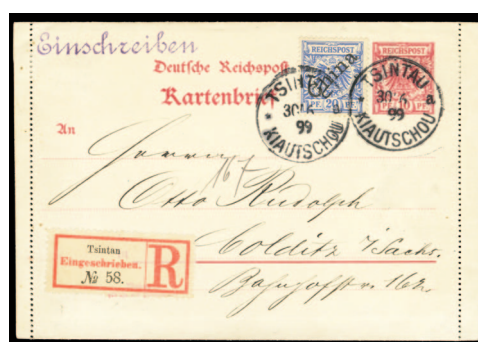 Einschreiben
Deutsche Reichspost
Kartenbrief
REICHSPOST
China
PF 20 PF
REICHSPOST
TSINTAU
30/6
99
* KIAUTSCHOU
TSINTAU
30/6
99
a
* KIAUTSCHOU
An
Herrn
167
Otto Rudolph
Colditz i/Sachs.
Bahnhofstr. 162.
Tsintau
Eingeschrieben.
№ 58.
R